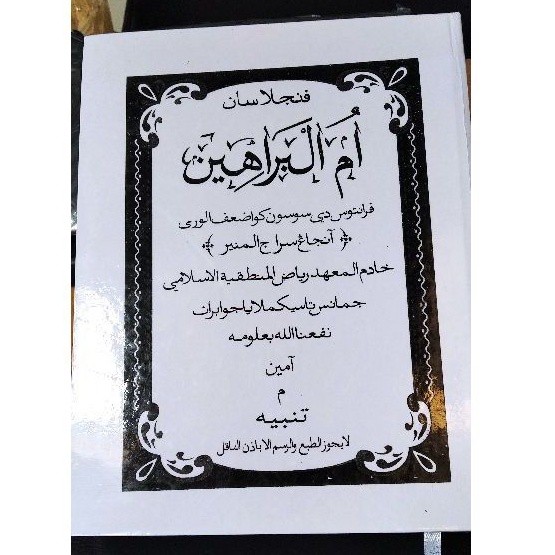 فنجلاسان
أم البراهين
فرانتوس دبي سوسون كو اضعف الورى
﴿ آنجاغ سراج المنير ﴾
خادم المعهد رياض المنطقية الاسلامي
جمانس تاسيكملايا جوا بران
نفعنا الله بعلومه
آمين
م
تنبيه
لا يجوز الطبع والرسم الا باذن الناقل